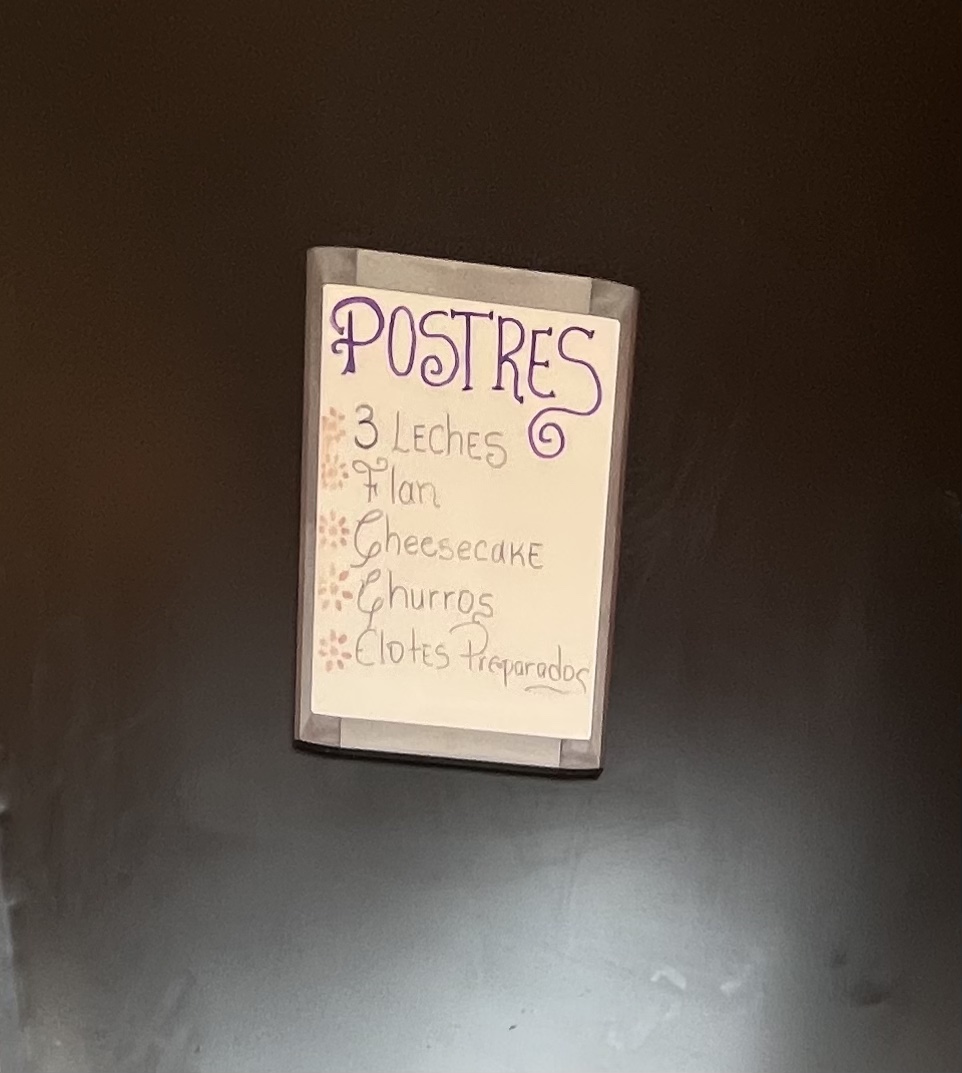 POSTRES
3 LECHES
Flan
CheesecaKE
Churros
ElotES Preparados